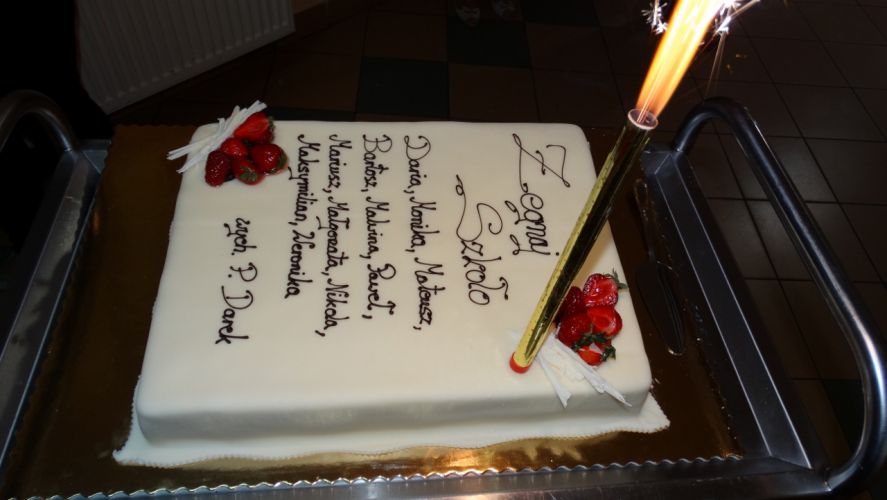 Żegnaj
Szkoło
Daria, Monika, Mateusz,
Bartosz, Malwina, Paweł,
Mariusz, Małgorzata, Nikola,
Maksymilian, Weronika
wych. P. Darek